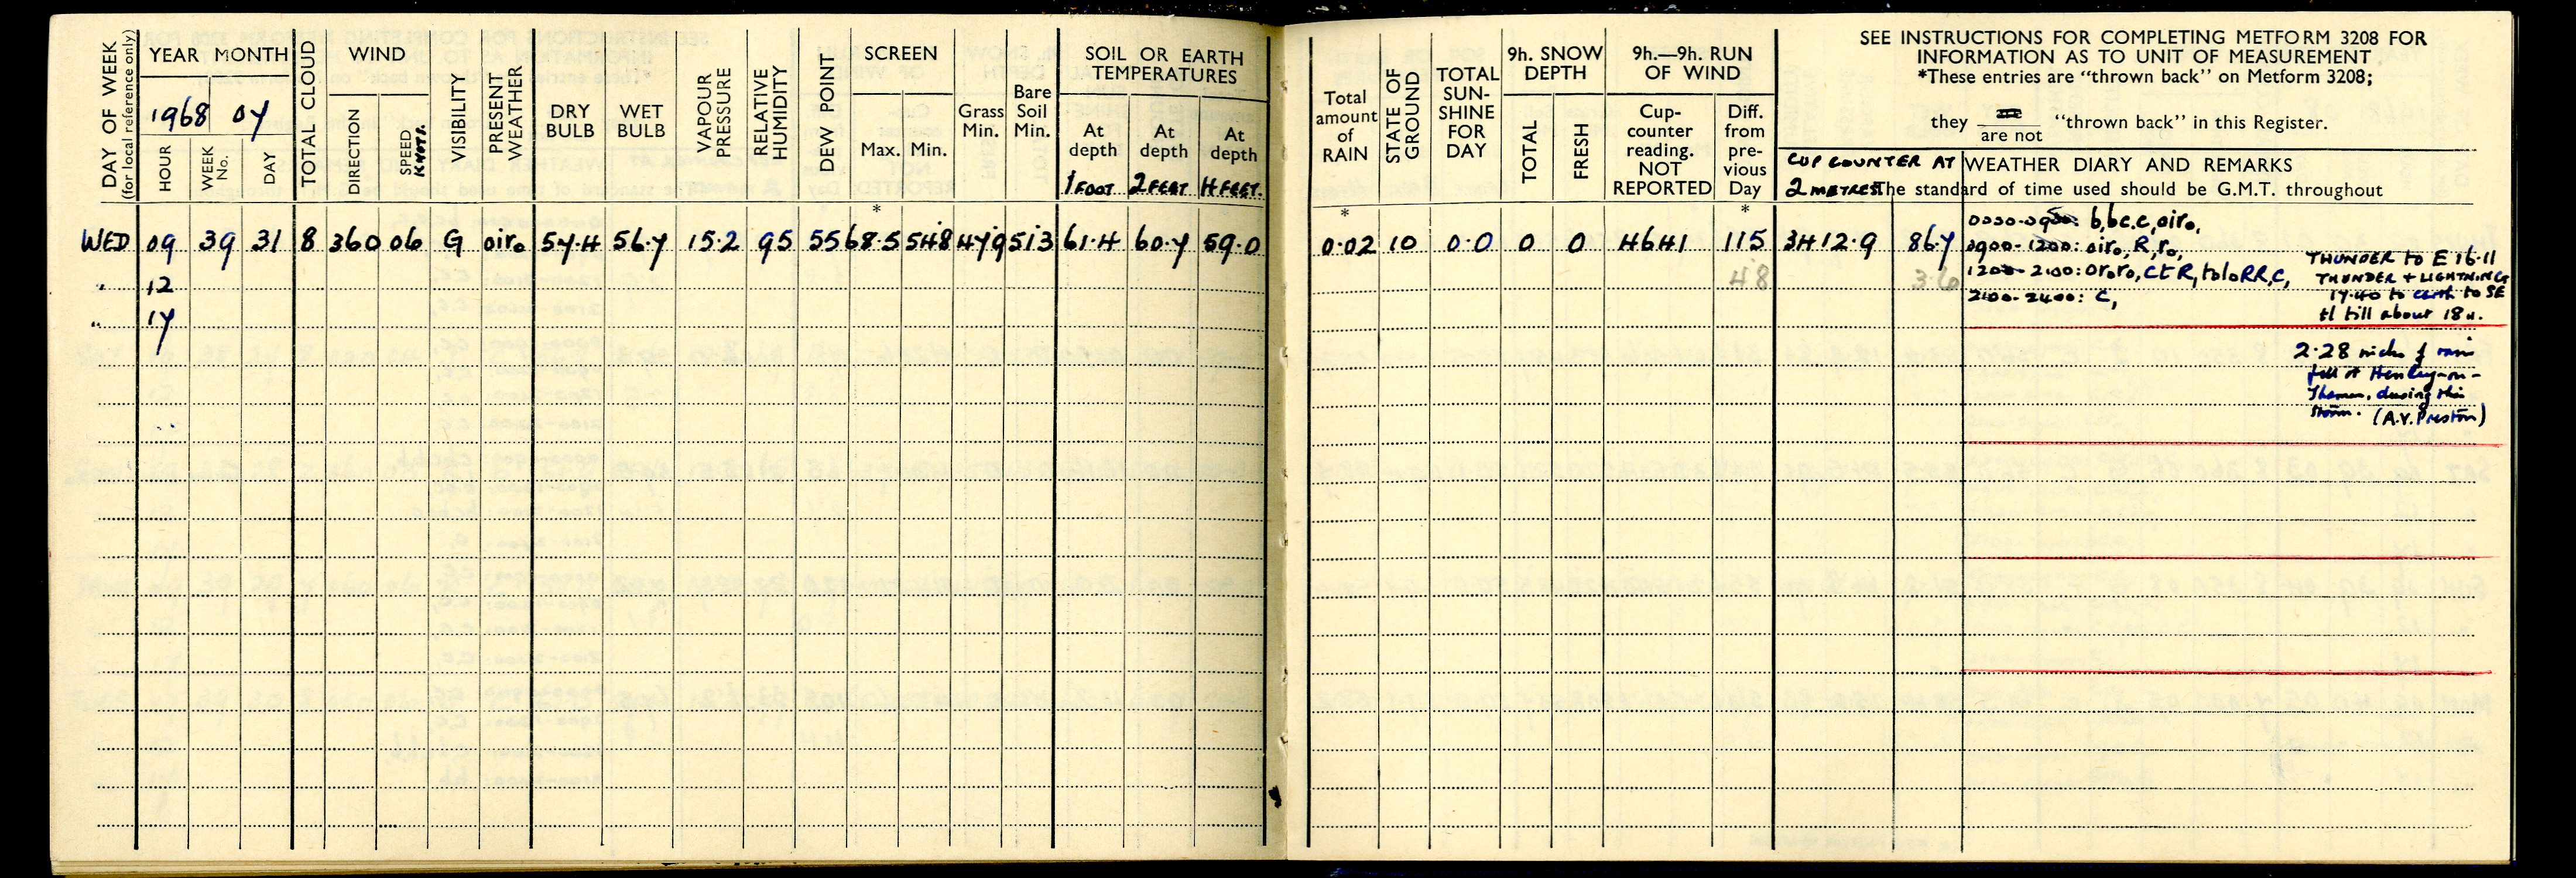 DAY OF WEEK
(for local reference only)
YEAR MONTH
1968 07
HOUR
WEEK No.
DAY
TOTAL CLOUD
WIND
DIRECTION
SPEED
KNOTS.
VISIBILITY
PRESENT WEATHER
DRY BULB
WET BULB
VAPOUR PRESSURE
RELATIVE HUMIDITY
DEW POINT
SCREEN
Max. Min.
Grass Min.
Bare Soil Min.
SOIL OR EARTH
TEMPERATURES
At depth 1 FOOT
At depth 2 FEET
At depth 4 FEET.
Total amount of RAIN
STATE OF GROUND
TOTAL SUN-SHINE FOR DAY
9h. SNOW DEPTH
TOTAL
FRESH
9h.—9h. RUN OF WIND
Cup-counter reading. NOT REPORTED
Diff. from pre-vious Day
SEE INSTRUCTIONS FOR COMPLETING METFORM 3208 FOR
INFORMATION AS TO UNIT OF MEASUREMENT
*These entries are "thrown back" on Metform 3208;
they are not "thrown back" in this Register.
CUP COUNTER AT
2 METRES
WEATHER DIARY AND REMARKS
The standard of time used should be G.M.T. throughout
* * *
WED 09 39 31 8 360 06 G oir₀ 57.4 56.7 15.2 95 55 68.5 54.8 47.9 51.3 61.4 60.7 59.0 0.02 10 0.0 0 0 4641 115 3412.9 86.7
" 12
" 17
48 3.6
0000-0900: b,bc.c,oir₀,
0900-1200: oir₀, R, r₀,
1200-2100: Or₀r₀, CtR, toloRR,C,
2100-2400: C,
THUNDER to E 16.11
THUNDER + LIGHTNING
17.40 to earth to SE
tl till about 18 h.
2.28 inches of rain
fell at Henley-on-
Thames, during this
storm. (A.V. Preston)